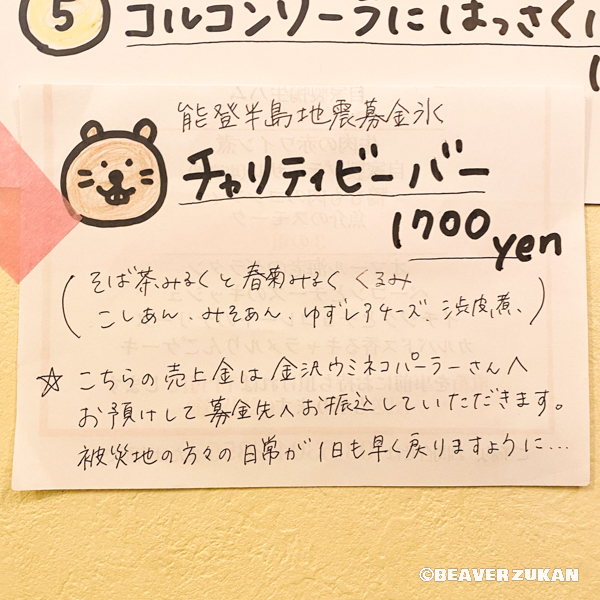 5 コルコンゾーラにはっさく
能登半島地震募金氷
チャリティビーバー
1700yen
(そば茶みるくと春菊みるく くるみ
こしあん、みそあん、ゆずレアチーズ、渋皮煮、)
☆ こちらの売上金は金沢ウミネコパーラーさんへ
お預けして募金先へお振込していただきます。
被災地の方々の日常が1日も早く戻りますように…
©BEAVER ZUKAN